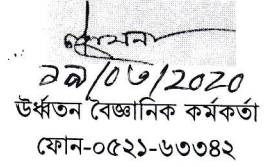 ২৯/০৬/2020
উর্ধ্বতন বৈজ্ঞানিক কর্মকর্তা
ফোন-০৫২১-৬৩৩৪২